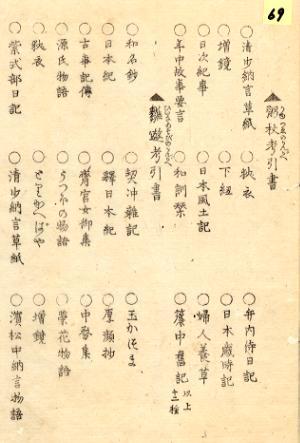 69
▲粥杖考引書
かゆづゑのかんがへ
○清少納言草紙 ○狭衣 ○弁内侍日記
○増鏡 ○下紐 ○日本歳時記
○日次紀事 ○日本風土記 ○婦人養草
○年中故事要言 ○和訓栞 ○簾中舊記 以上十二種
▲雛遊考引書
ひいなあそびのかんがへ
○和名鈔 ○契沖雜記 ○玉かつま
○日本紀 ○釋日本紀 ○厚顔抄
○古事記傳 ○齋宮女御集 ○中務集
○源氏物語 ○うつほの物語 ○榮花物語
○狭衣 ○とりかへばや ○増鏡
○紫式部日記 ○清少納言草紙 ○濱松中納言物語